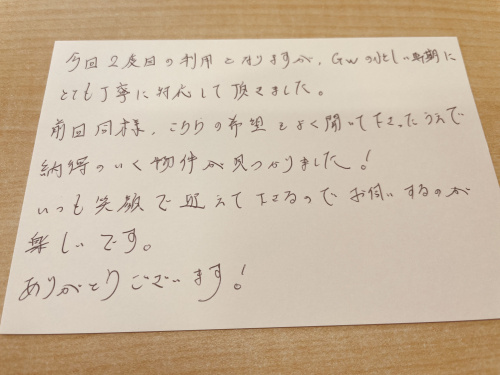 今回2度目の利用となりますが、GWの忙しい時期に
とても丁寧に対応して頂きました。
前回同様、こちらの希望をよく聞いて下さったうえで
納得のいく物件が見つかりました!
いつも笑顔で迎えて下さるのでお伺いするのが
楽しいです。
ありがとうございます!